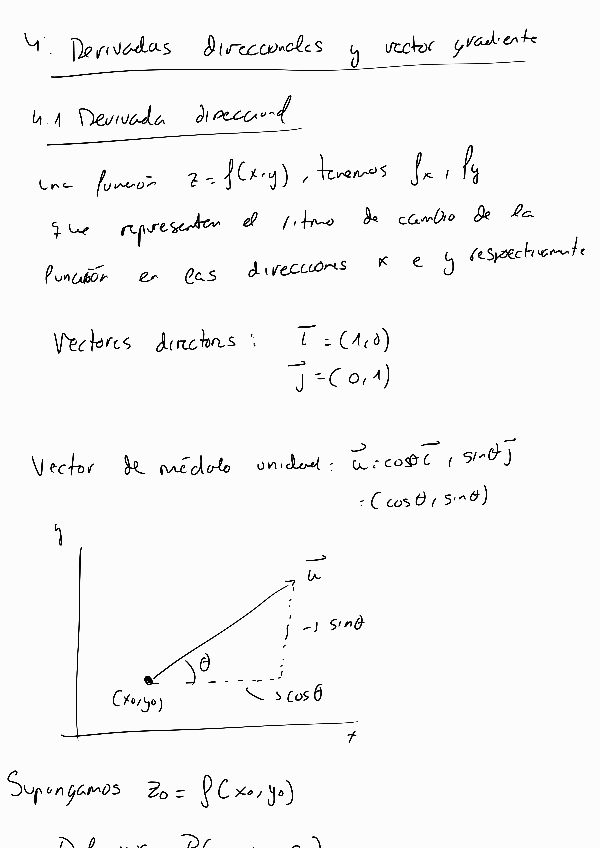 4. Derivadas direccionales y vector gradiente
4.1 Derivada direccional
una función z = f(x,y), tenemos fx, fy
que representan el ritmo de cambio de la
función en las direcciones x e y respectivamente
Vectores directores: i = (1,0)
j = (0,1)
Vector de módulo unidad: u = cosθ i, sinθ j
= (cosθ, sinθ)
y
u
→ sinθ
θ
→ cosθ
(x0,y0)
x
Supongamos z0 = f(x0,y0)